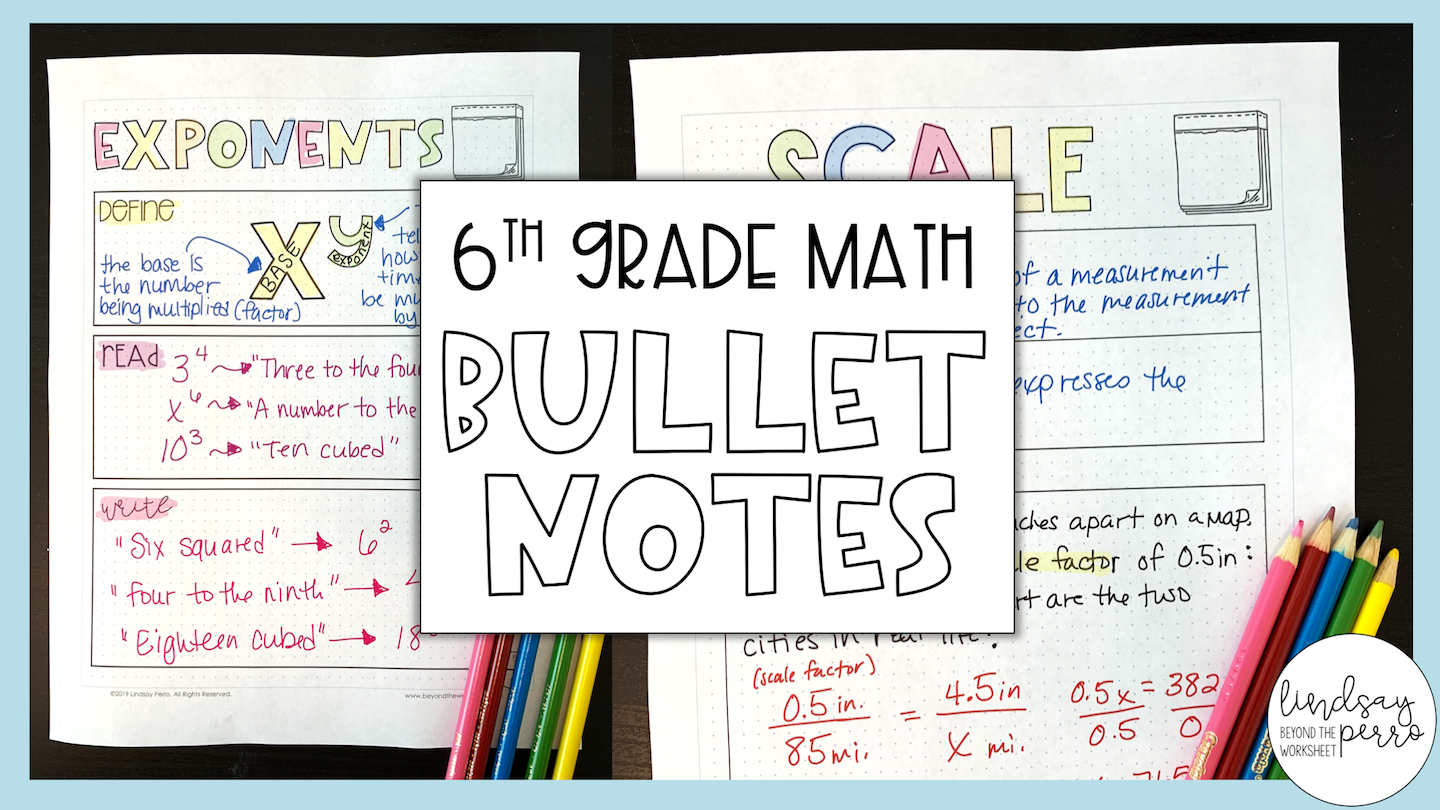 EXPONENTS
DEFINE
the base is
the number
being multiplied (factor)
X
BASE
y
exponent
how
be
by
READ
3^4 "Three to the
x^6 "A number to the
10^3 "Ten cubed"
write
"Six squared" 6^2
"four to the ninth"
"Eighteen cubed" 18
©2019 Lindsay Perro. All Rights Reserved.
6TH GRADE MATH
BULLET
NOTES
SCALE
of a measurement
to the measurement
expresses the
apart on a map.
factor of 0.5in:
are the two
cities in real life?
(scale factor)
0.5in. = 4.5in
85mi. x mi.
0.5x = 382
0.5
lindsay
perro
BEYOND THE
WORKSHEET